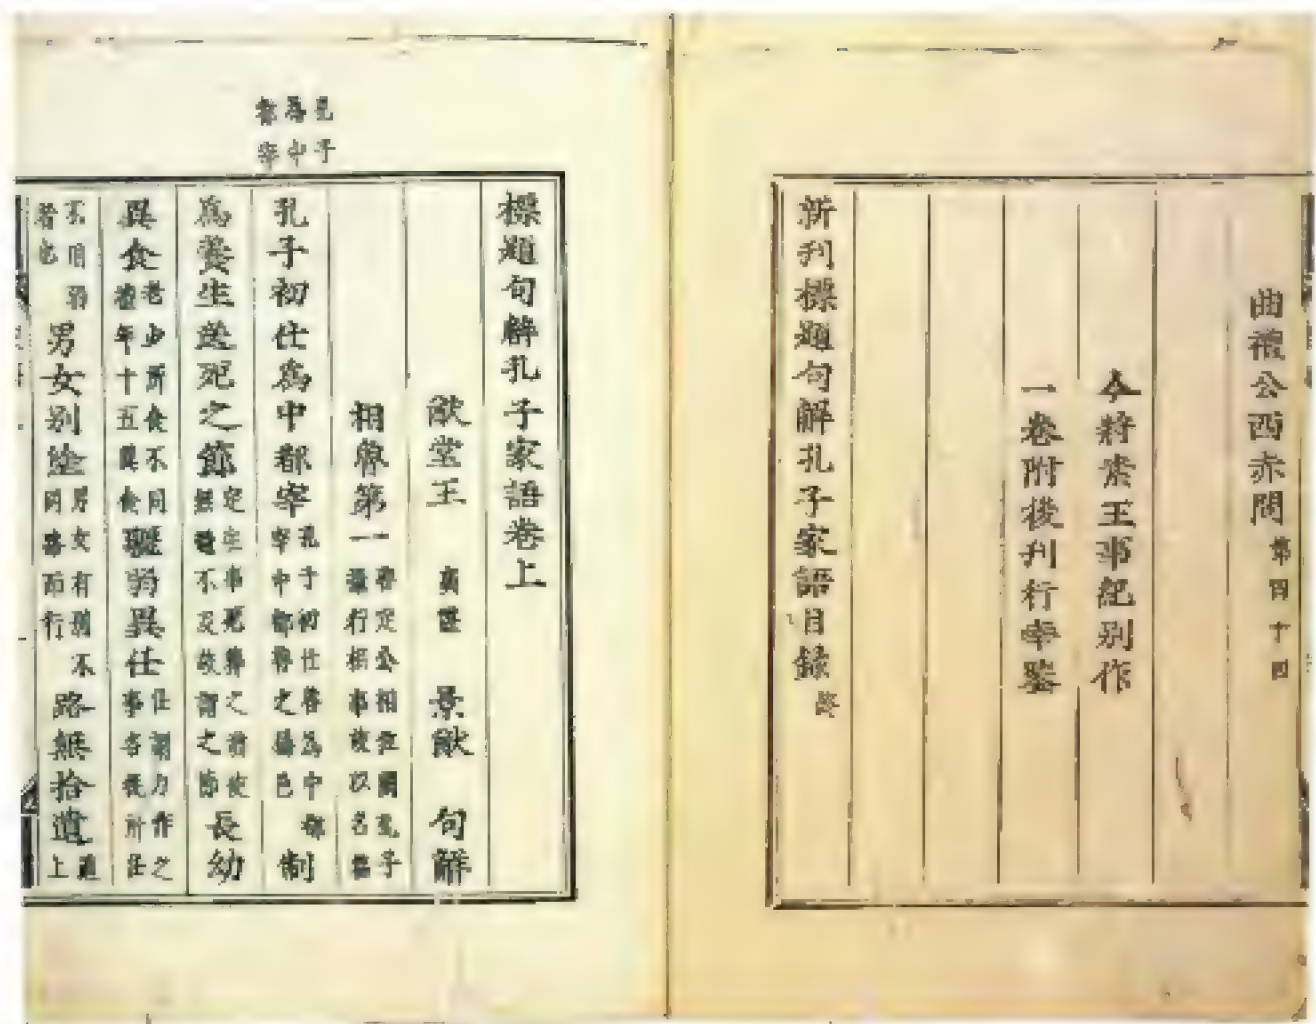 曲禮公西赤問第四十四
今將素王事紀別作
一卷附後刊行幸鑒
新刊標題句解孔子家語目錄終
孔子
為中
都宰
標題句解孔子家語卷上
猷堂王 廣謀 景猷 句解
相魯第一魯定公相位國孔子攝行相事故以名篇
孔子初仕為中都宰孔子初仕魯為中都宰中都魯之屬邑制
為養生送死之節定生事死葬之禮使無過不及故謂之節長幼
異食老少所食不同禮年十五異食強弱異任任謂力作之事各從所任
不用弱者也男女別塗男女有別不同路而行路無拾遺道上